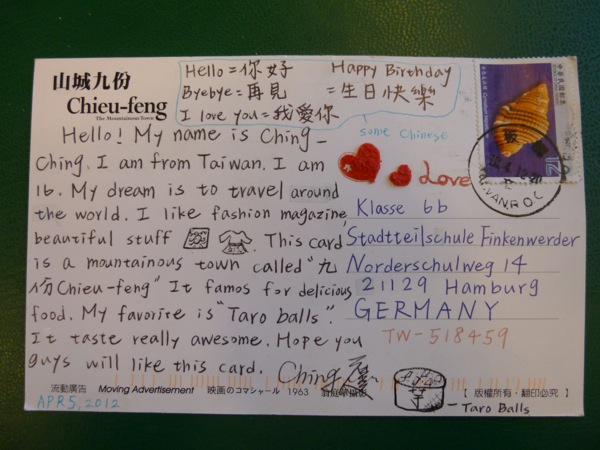 山城九份
Chieu-feng
The Mountainous Town
Hello = 你好 Happy Birthday
Byebye = 再見 = 生日快樂
I love you = 我愛你
some Chinese
Love
Hello! My name is Ching-
Ching. I am from Taiwan. I am
16. My dream is to travel around
the world. I like fashion magazine,
beautiful stuff. This card
is a mountainous town called "九
份 Chieu-feng" It famos for delicious
food. My favorite is "Taro balls".
It taste really awesome. Hope you
guys will like this card. Ching
Klasse 6b
Stadtteilschule Finkenwerder
Norderschulweg 14
21129 Hamburg
GERMANY
TW-518459
流動廣告 Moving Advertisement 映画のコマシャール 1963
【版權所有·翻印必究】
APR 5, 2012
Taro Balls
中華民國郵票
12
TAIWAN, R.O.C.